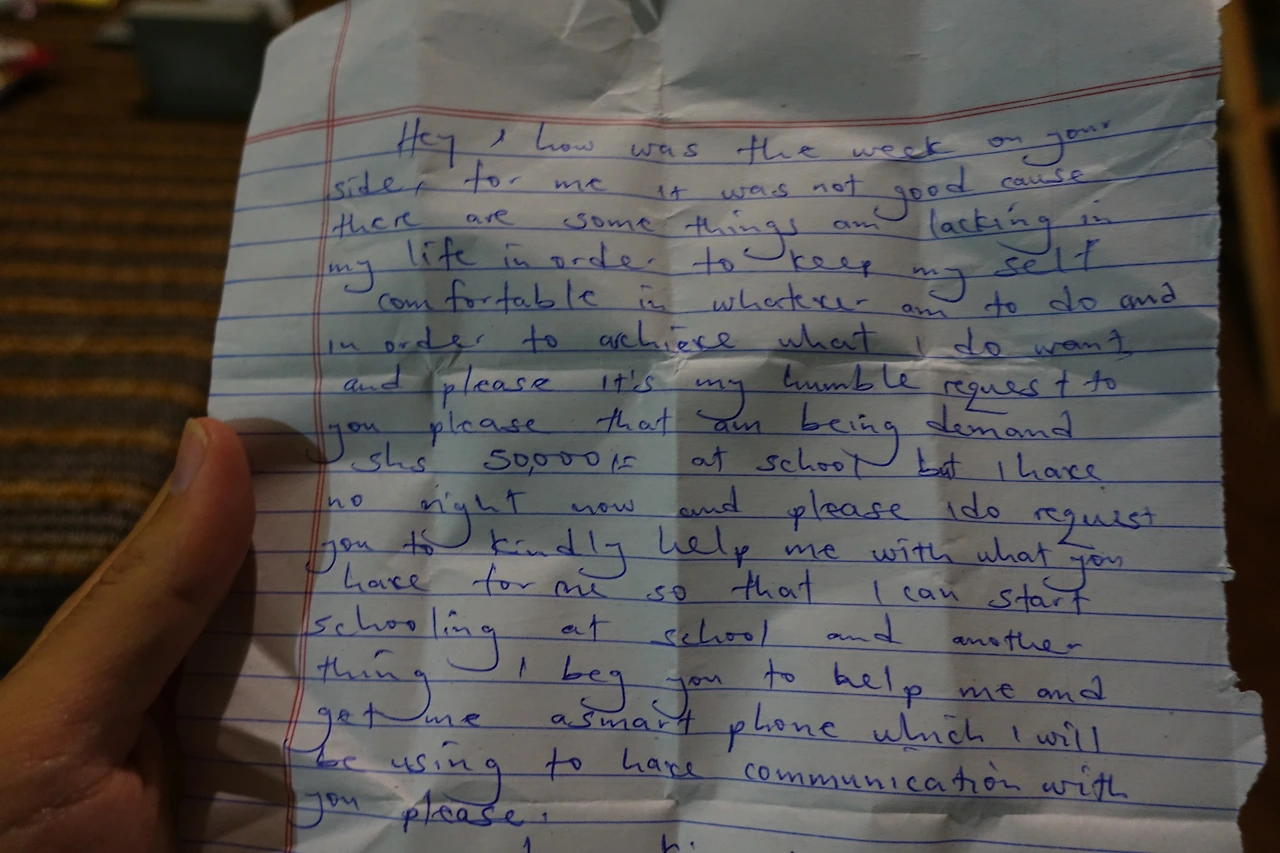 Hey, how was the week on your
side, for me it was not good cause
there are some things am lacking in
my life in order to keep my self
comfortable in whatever am to do and
in order to archieve what I do want
and please it's my humble request to
you please that am being demand
shs 50,000/= at school but I have
no right now and please I do request
you to kindly help me with what you
have for me so that I can start
schooling at school and another
thing I beg you to help me and
get me a smart phone which I will
be using to have communication with
you please.